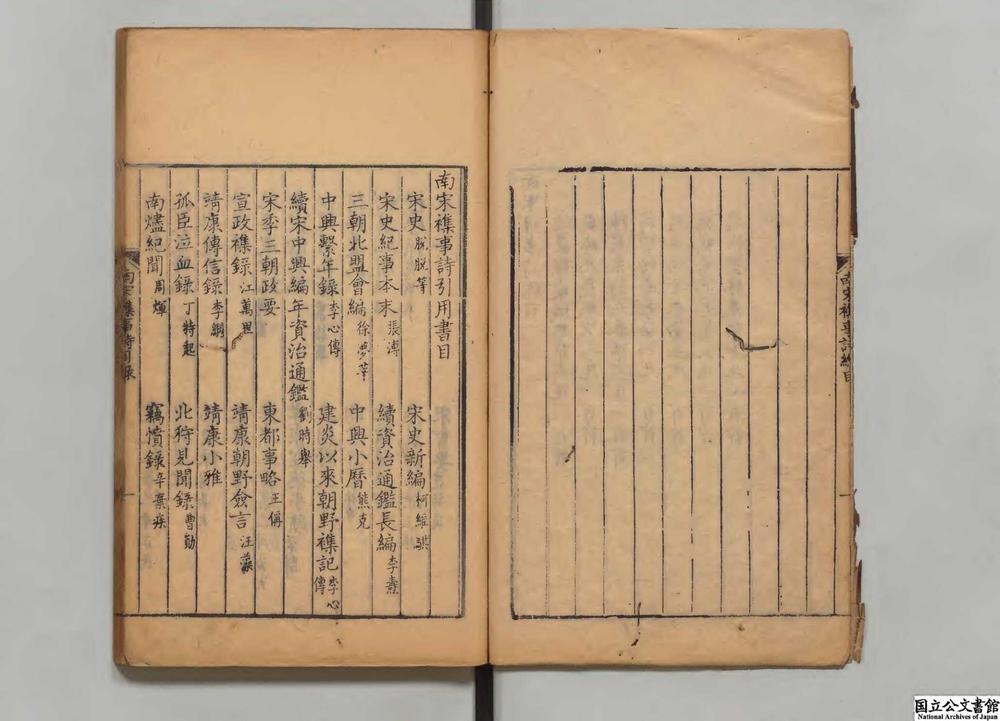 南宋襍事詩總目
南宋襍事詩引用書目
宋史 脫脫等 宋史新編 柯維騏
宋史紀事本末 張溥 續資治通鑑長編 李燾
三朝北盟會編 徐夢莘 中興小曆 熊克
中興繫年錄 李心傳 建炎以來朝野襍記 李心傳
續宋中興編年資治通鑑 劉時舉
宋季三朝政要 東都事略 王偁
宣政襍錄 江萬里 靖康朝野僉言 汪藻
靖康傳信錄 李綱 靖康小雅
孤臣泣血錄 丁特起 北狩見聞錄 曹勛
南燼紀聞 周煇 竊憤錄 辛棄疾
一
国立公文書館
National Archives of Japan